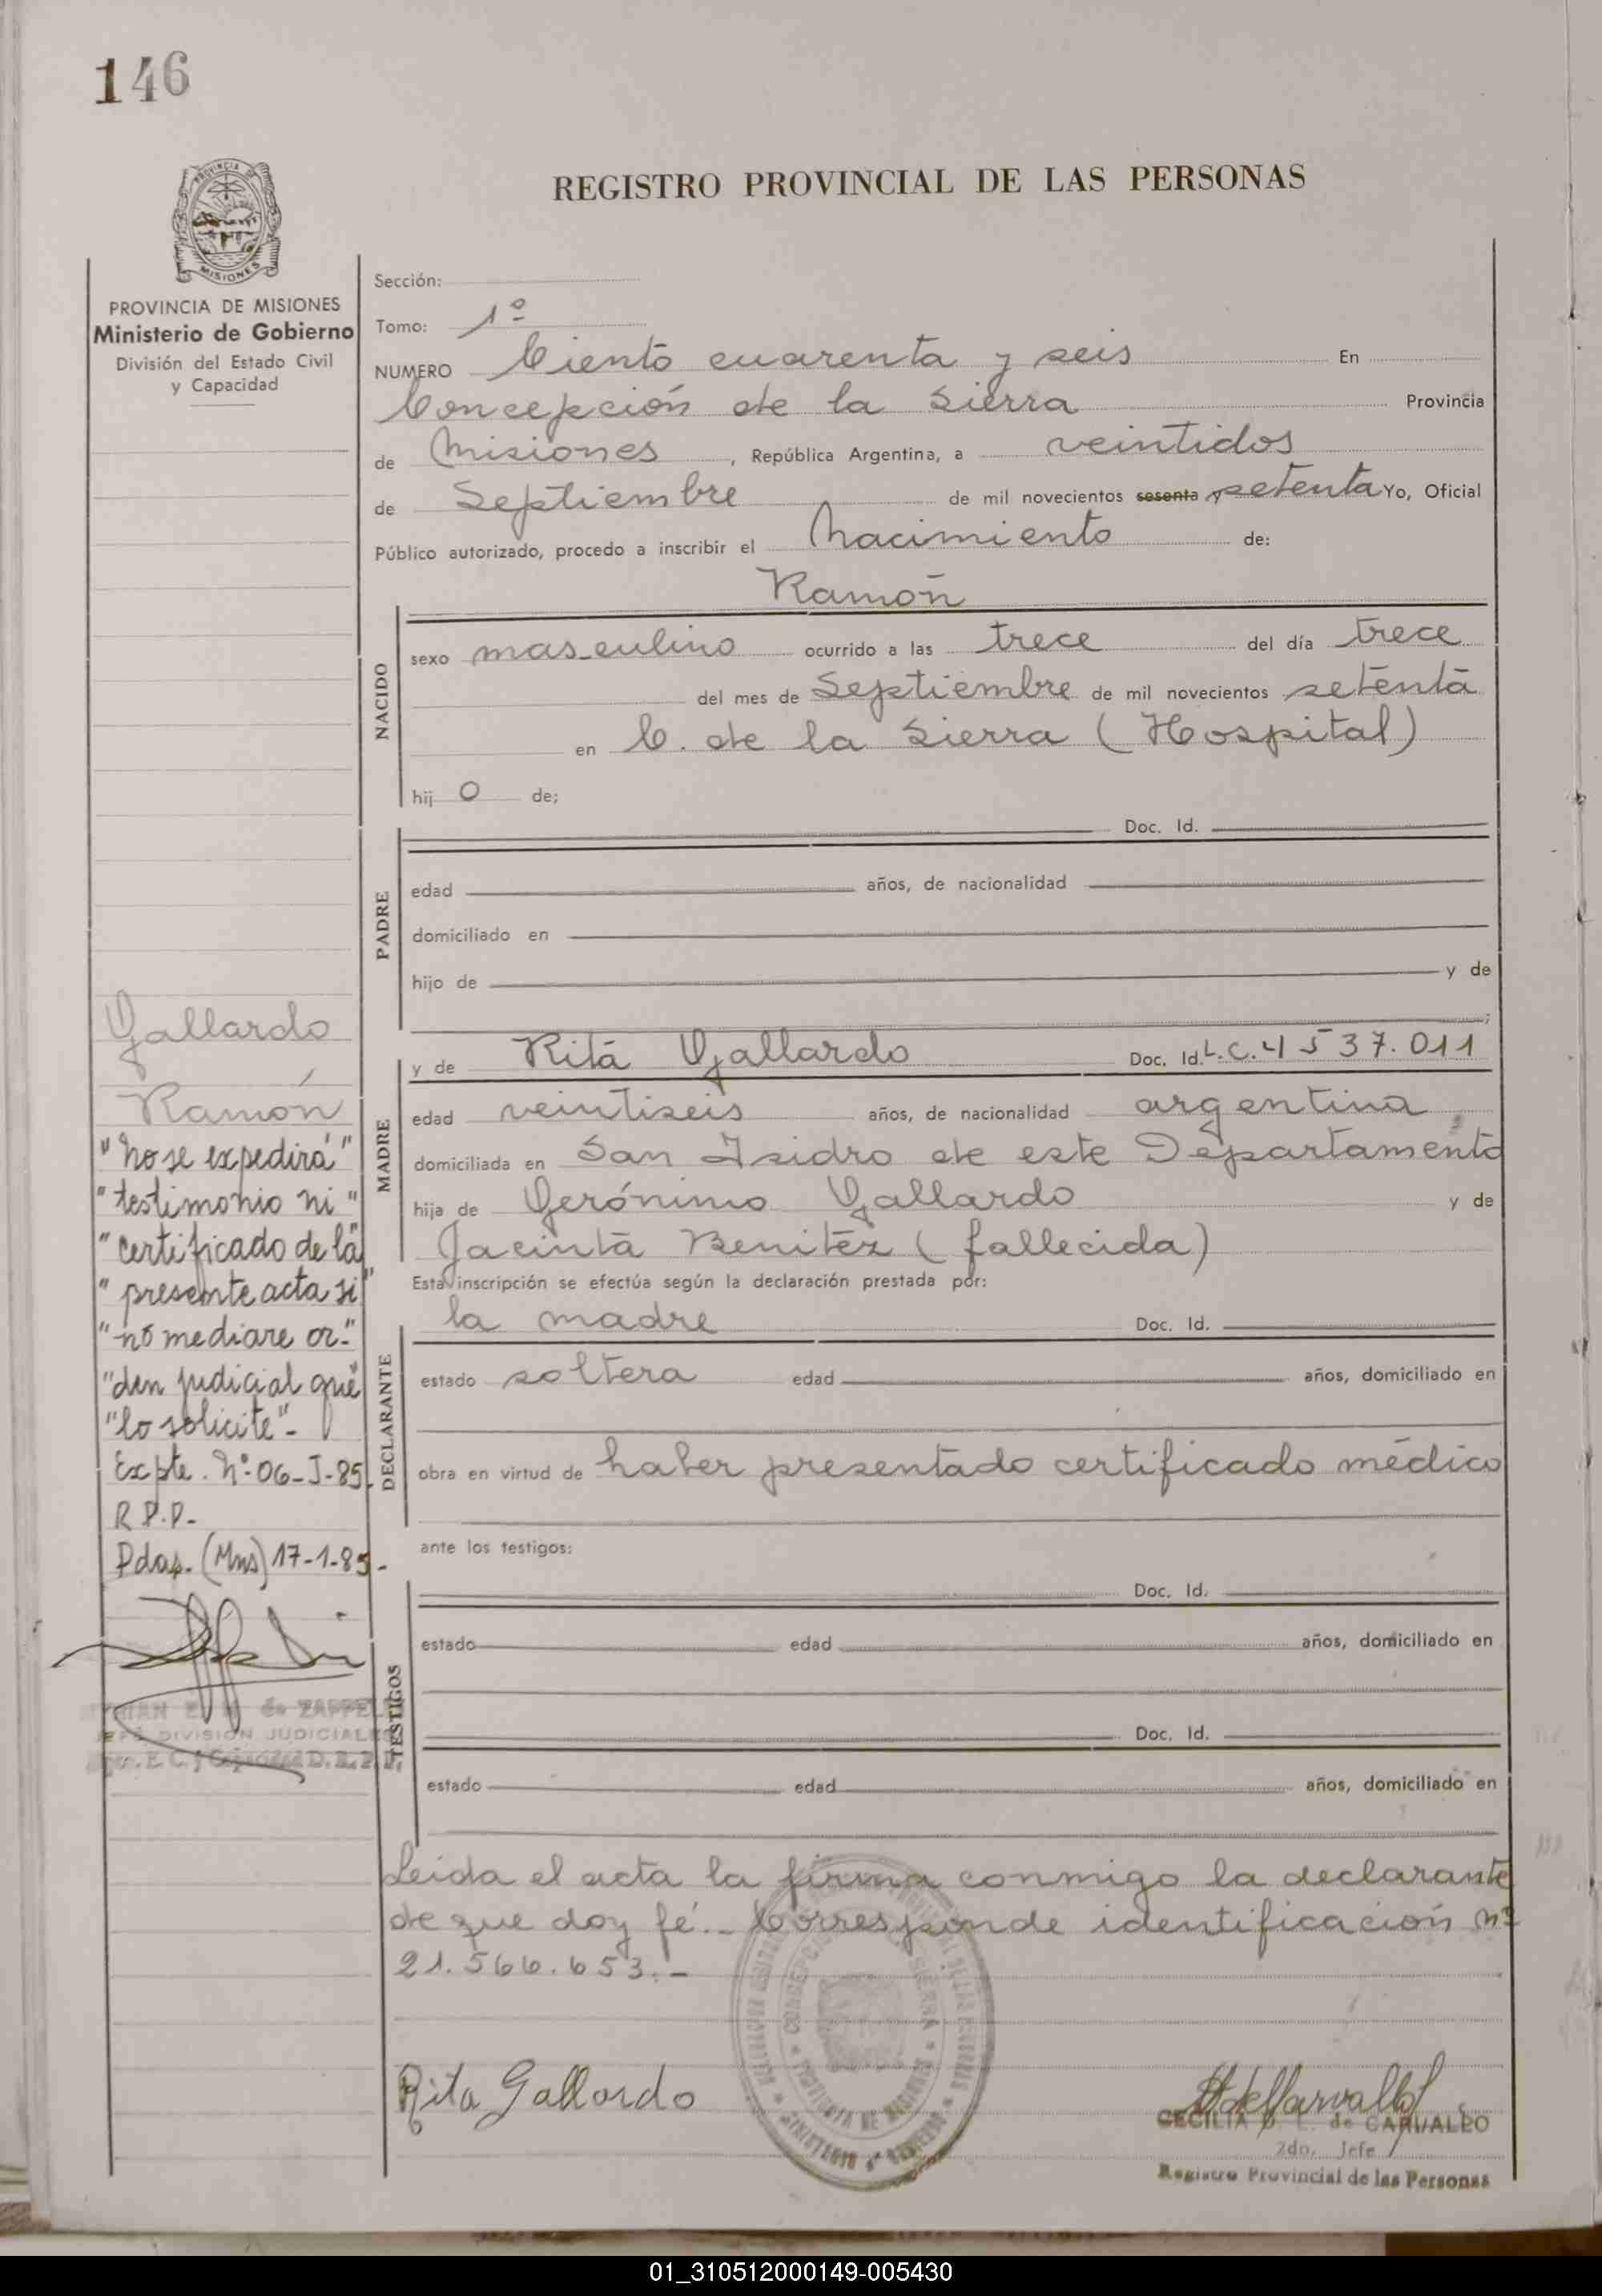 146
REGISTRO PROVINCIAL DE LAS PERSONAS
PROVINCIA DE MISIONES
Ministerio de Gobierno
División del Estado Civil
y Capacidad
Sección:
Tomo: 1º
NUMERO Ciento cuarenta y seis En
Concepción de la Sierra Provincia
de Misiones, República Argentina, a veintidos
de Septiembre de mil novecientos sesenta y setenta Yo, Oficial
Público autorizado, procedo a inscribir el Nacimiento de:
Ramón
NACIDO
sexo masculino ocurrido a las trece del día trece
del mes de Septiembre de mil novecientos setenta
en C. de la Sierra (Hospital)
hij o de;
PADRE
Doc. Id.
edad años, de nacionalidad
domiciliado en
hijo de y de
MADRE
y de Rita Gallardo Doc. Id. L.C. 4537.011
edad veintiseis años, de nacionalidad argentina,
domiciliada en San Isidro de este Departamento
hija de Gerónimo Gallardo y de
Jacinta Benitez (fallecida)
Esta inscripción se efectúa según la declaración prestada por:
DECLARANTE
la madre Doc. Id.
estado soltera edad años, domiciliado en
obra en virtud de haber presentado certificado médico
ante los testigos:
TESTIGOS
Doc. Id.
estado edad años, domiciliado en
Doc. Id.
estado edad años, domiciliado en
Leida el acta la firma conmigo la declarante
de que doy fé.- Corresponde identificación nº
21.566.653.-
Gallardo
Ramón
"No se expedirá"
"testimonio ni"
"certificado de la"
"presente acta si"
"no mediare or-"
"den judicial que"
"lo solicite"-
Expte. Nº 06-J-85.
R.P.P.-
Pdas. (Mns) 17-1-85-
de ZAPPEL
JEFE DIVISION JUDICIALES
Rita Gallardo
CECILIA de CARVALLO
2do. Jefe
Registro Provincial de las Personas
CONCEPCION SIERRA
PROVINCIA DE MISIONES
MINISTERIO DE GOBIERNO
01_310512000149-005430